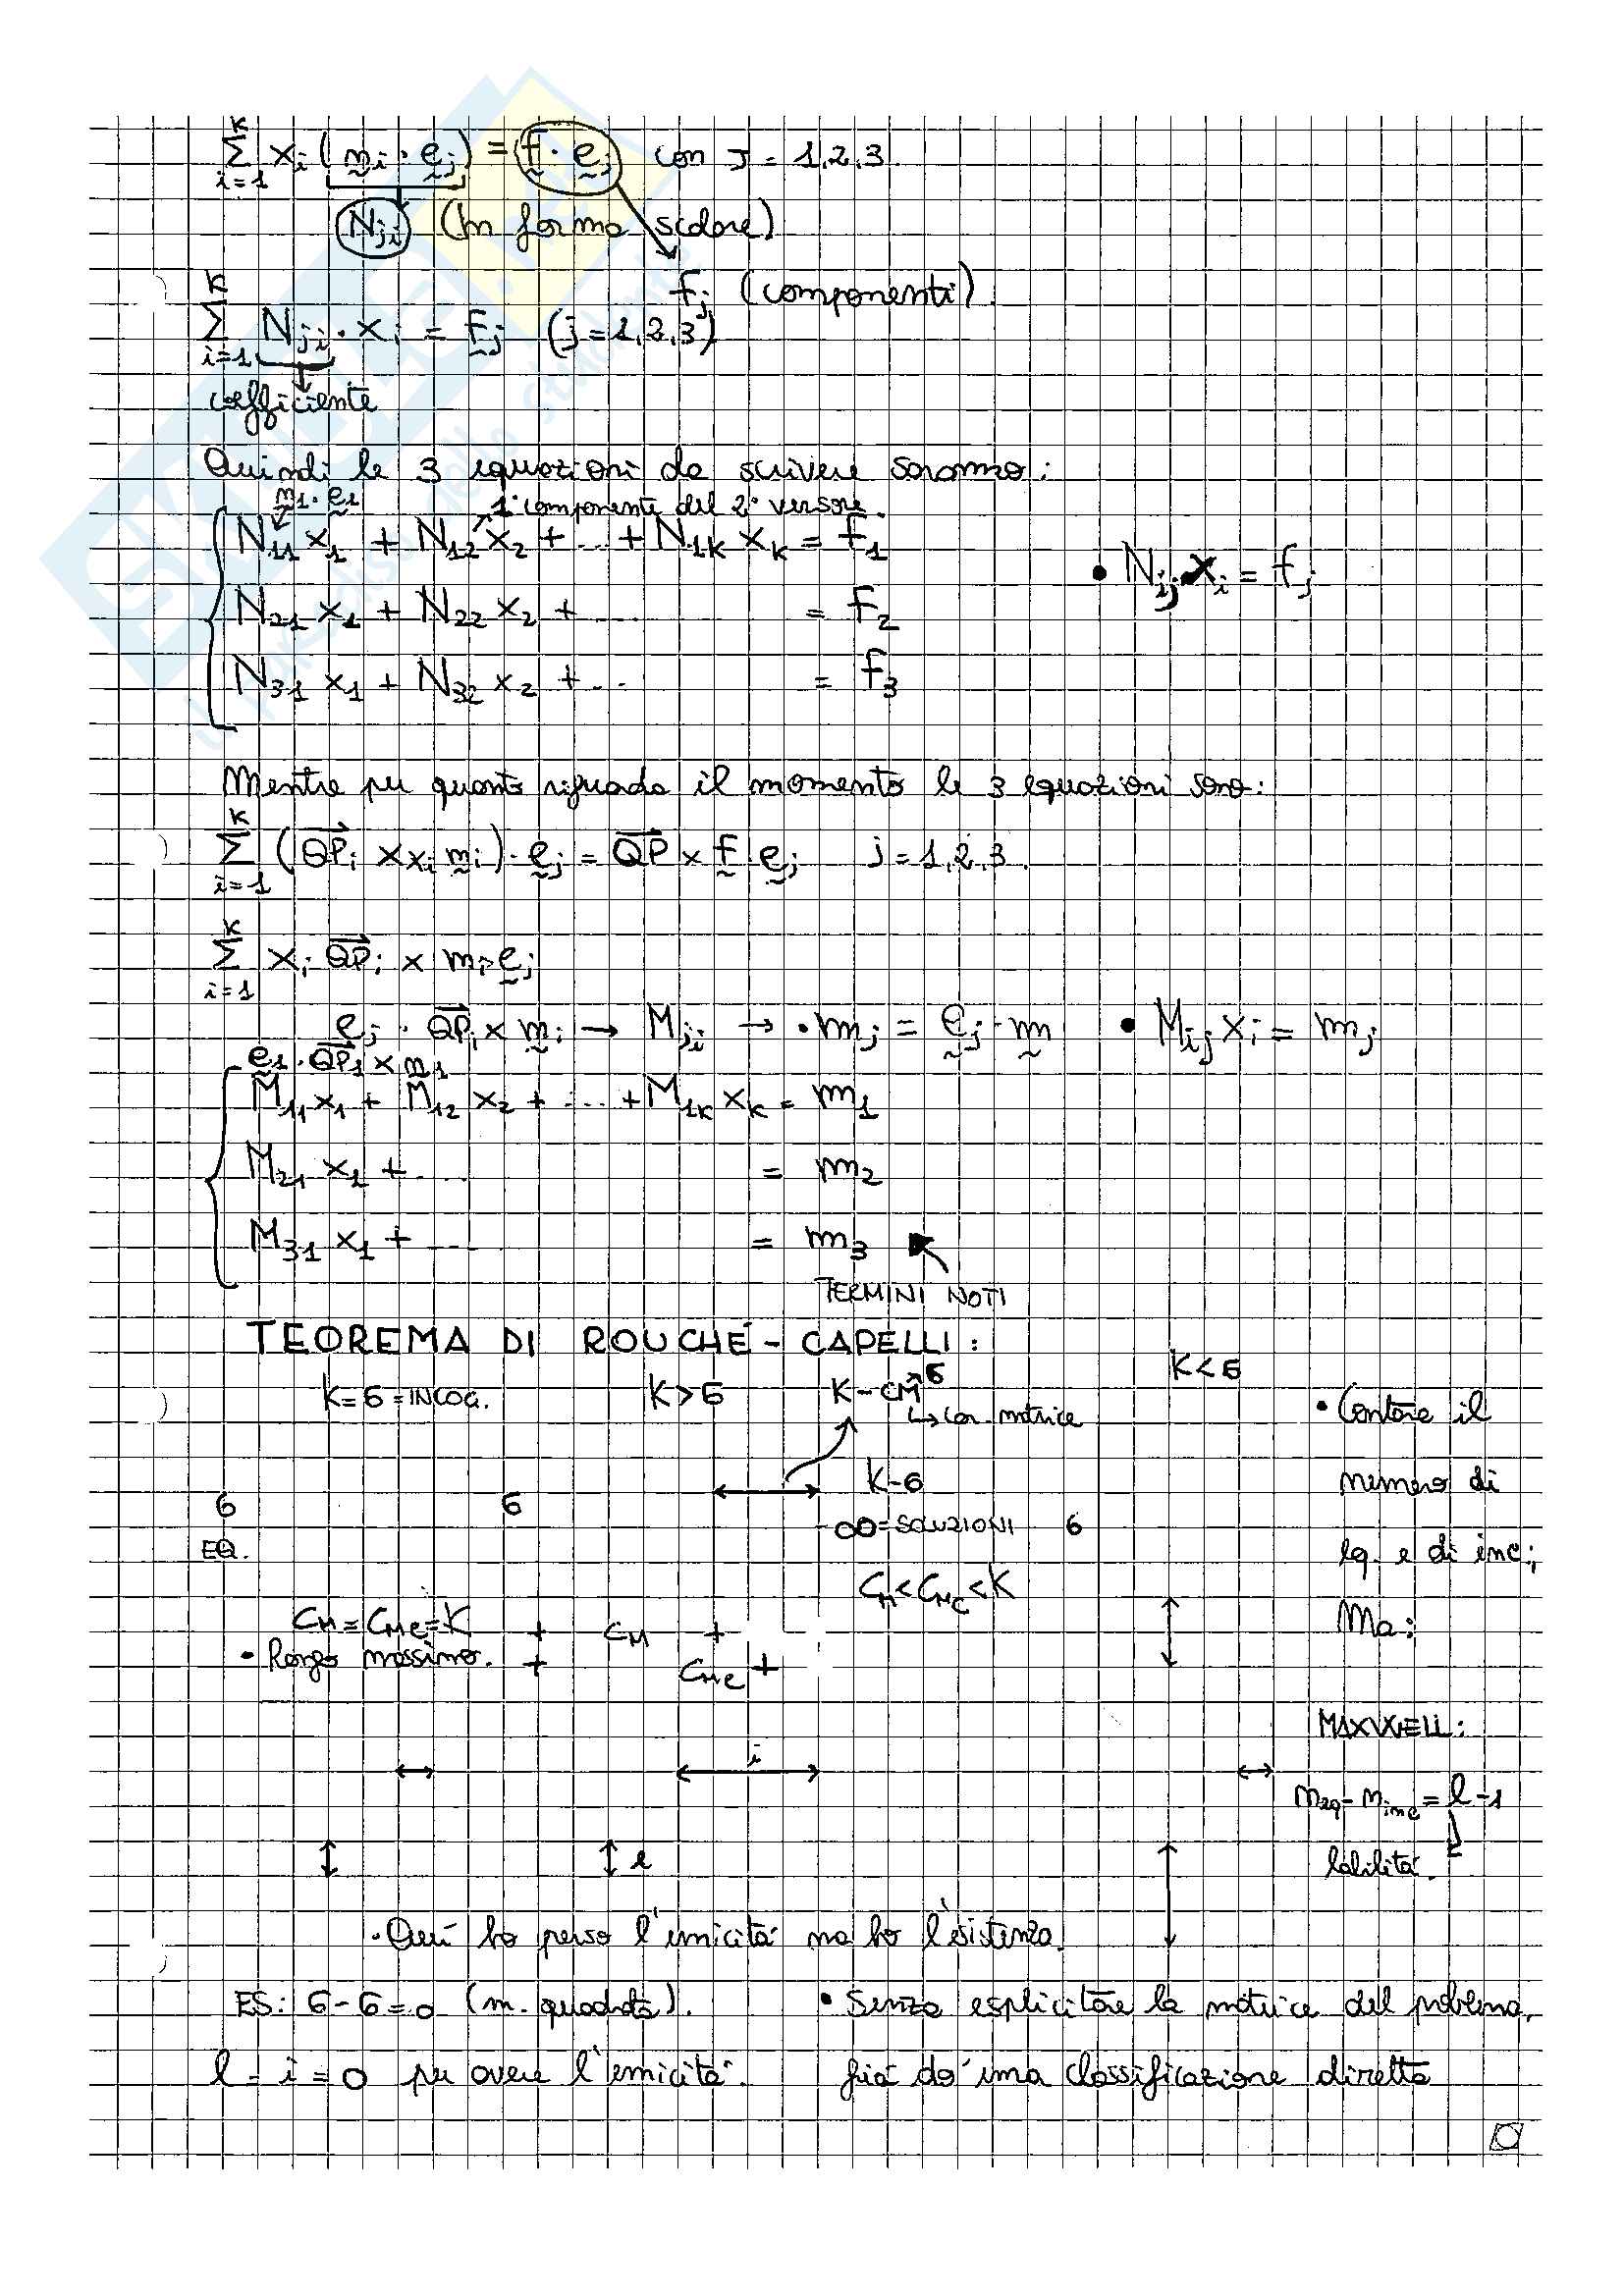 K
Σ xᵢ (nᵢ · eⱼ) = f · eⱼ con J = 1,2,3.
i=1
Nⱼᵢ (In forma scalare)
fⱼ (componenti)
K
Σ Nⱼᵢ · xᵢ = Fⱼ (j = 1,2,3)
i=1
coefficiente
Quindi le 3 equazioni da scrivere saranno:
n₁ · e₁ 1ª componente del 2° versore.
N₁₁ x₁ + N₁₂ x₂ + ... + N₁ₖ xₖ = f₁
• Nᵢⱼ · xᵢ = fⱼ
N₂₁ x₁ + N₂₂ x₂ + ... = f₂
N₃₁ x₁ + N₃₂ x₂ + ... = f₃
Mentre per quanto riguarda il momento le 3 equazioni sono:
K
Σ (QPᵢ × xᵢ nᵢ) · eⱼ = QP × f · eⱼ j = 1,2,3.
i=1
K
Σ xᵢ QPᵢ × nᵢ · eⱼ
i=1
eⱼ · QPᵢ × nᵢ → Mⱼᵢ → · mⱼ = eⱼ · m • Mᵢⱼ xᵢ = mⱼ
e₁ · QP₁ × n₁
M₁₁ x₁ + M₁₂ x₂ + ... + M₁ₖ xₖ = m₁
M₂₁ x₁ + ... = m₂
M₃₁ x₁ + ... = m₃
TERMINI NOTI
TEOREMA DI ROUCHÉ - CAPELLI:
K = 6 = INCOG. K > 6 K - CM 6 K < 6
↳ car. matrice • Contare il
K - 6 numero di
6 6
∞ = SOLUZIONI 6
EQ. eq. e di inc;
C_M < C_MC < K
C_M = C_MC = K + C_M + Ma:
• Rango massimo. + C_MC +
MAXWELL:
i
n_eq - n_inc = l - i
l labilità.
• Qui ho perso l'unicità ma ho l'esistenza.
ES: 6 - 6 = 0 (m. quadrata). • Senza esplicitare la matrice del problema,
l - i = 0 per avere l'unicità. già dò una classificazione diretta